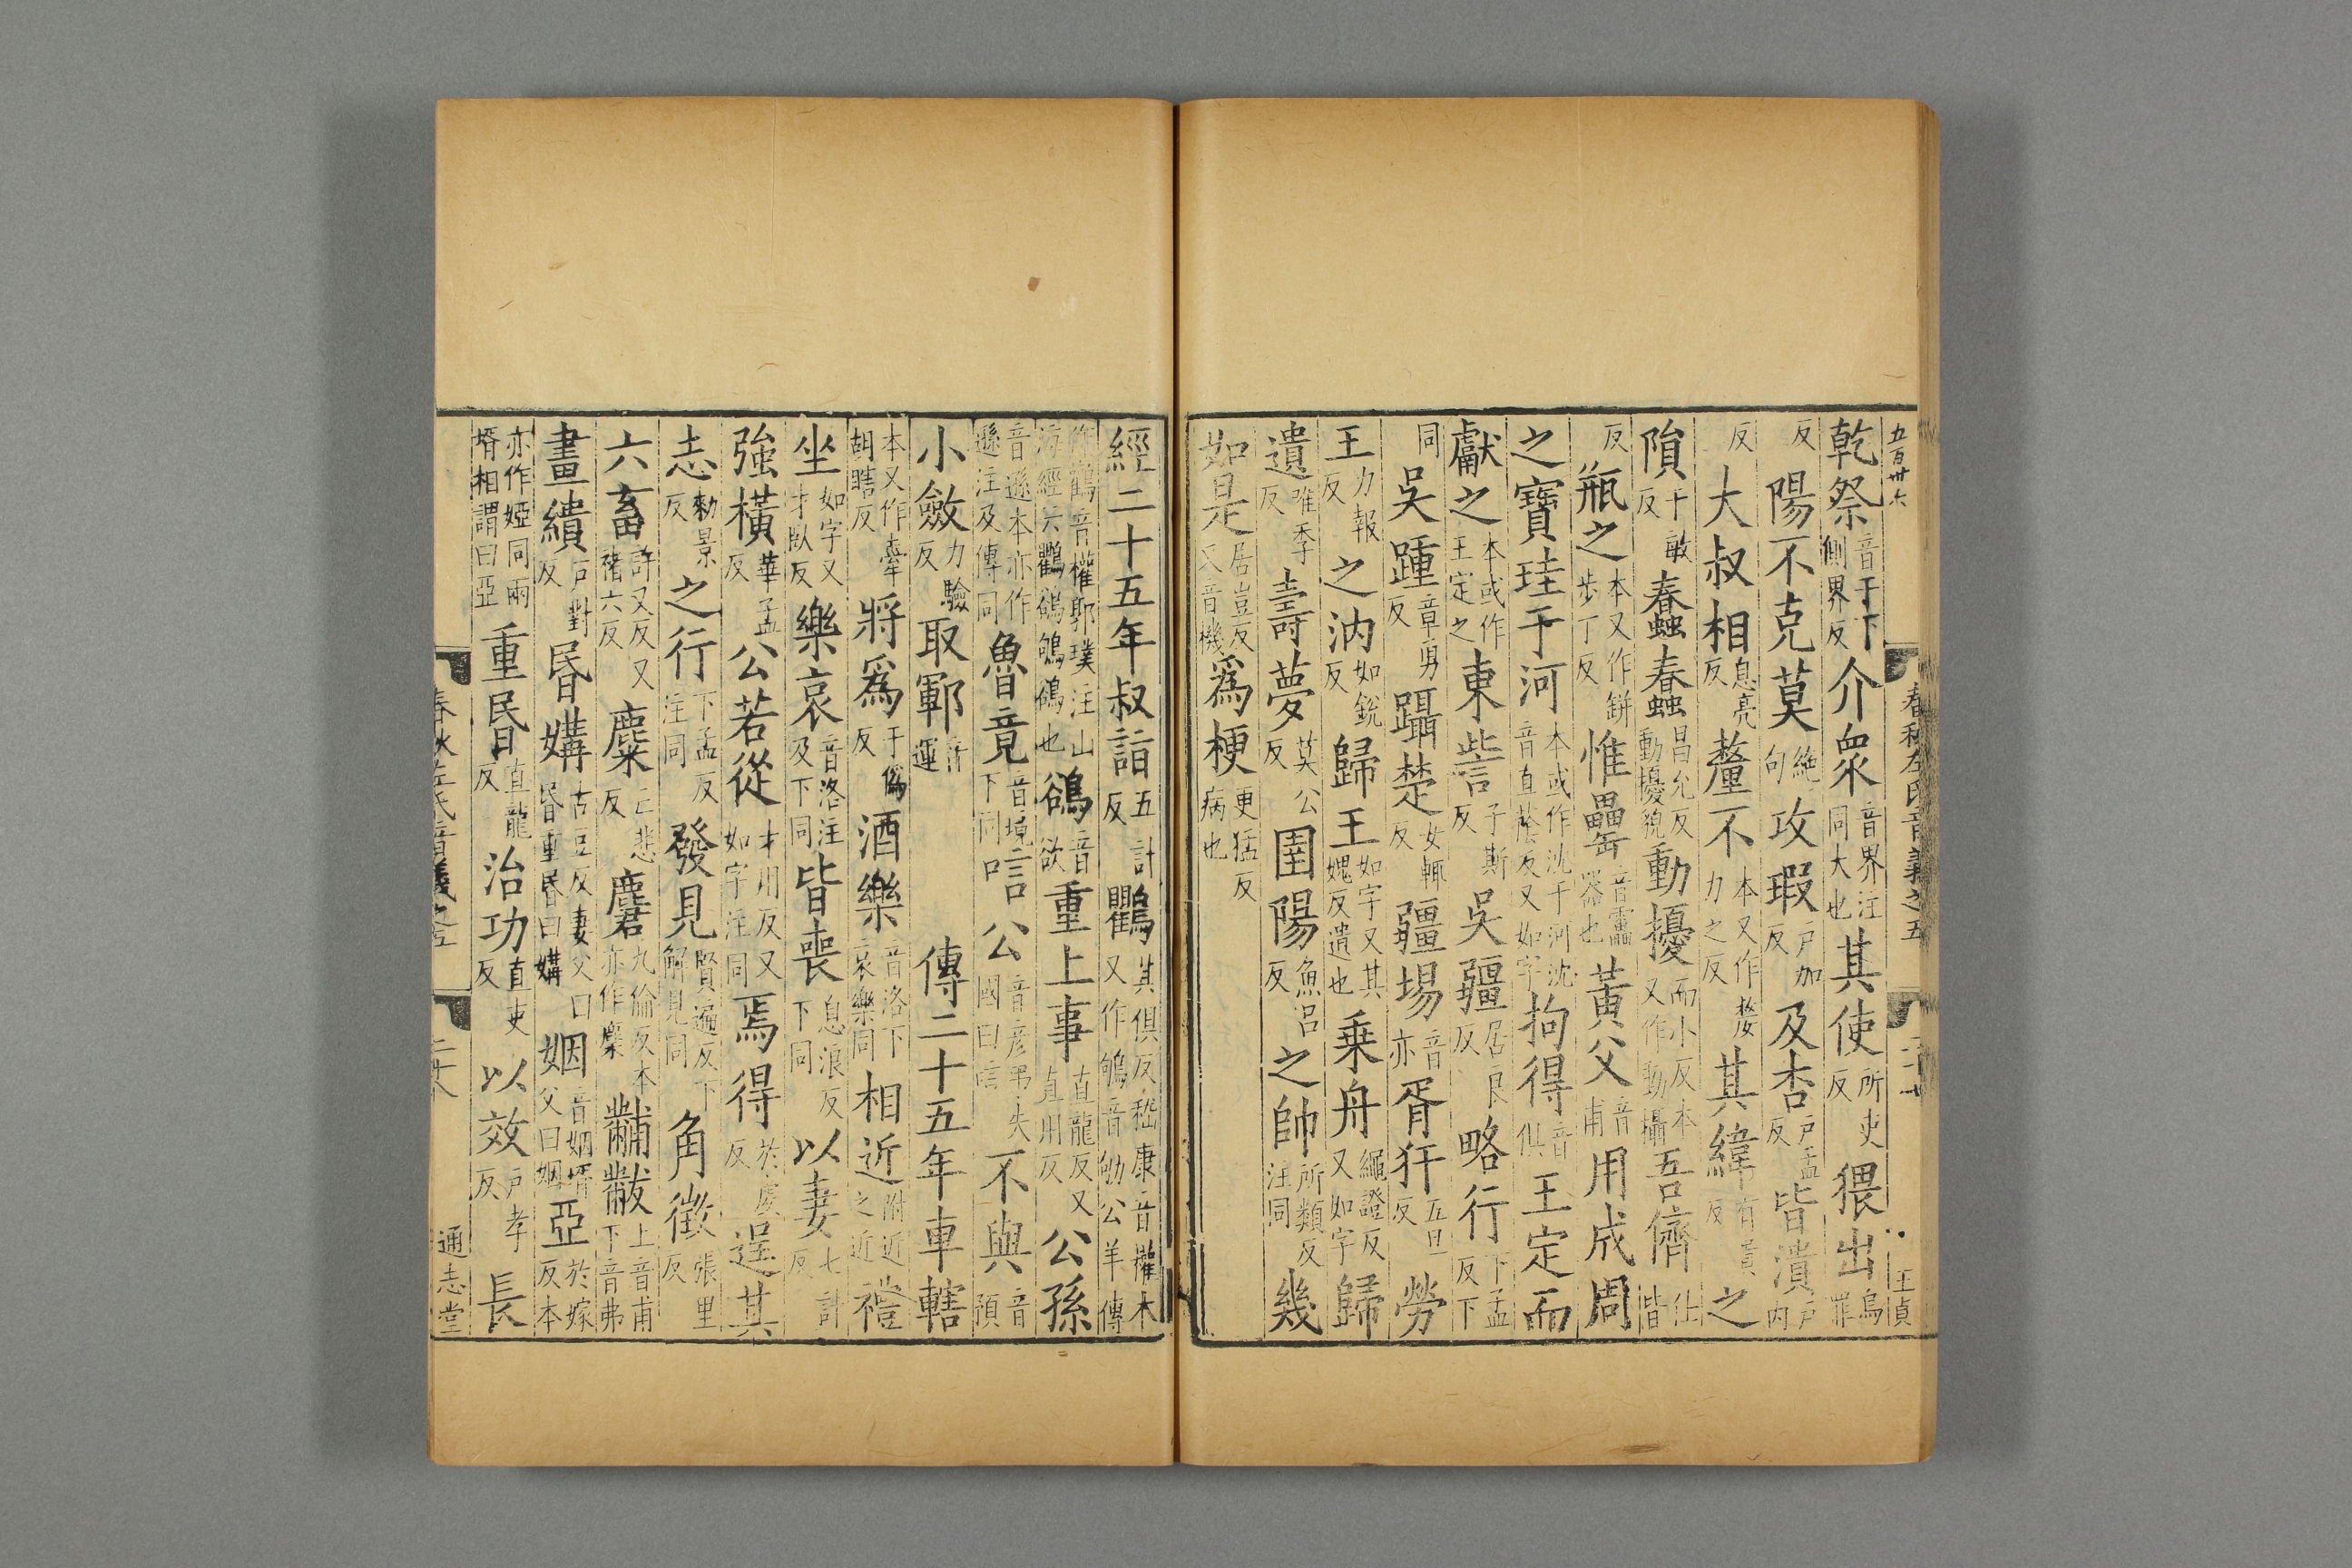 五百卅六 春秋左氏音義之五 王貞
乾祭音干下側界反介衆音界注同大也其使所吏反猥出烏罪
反陽不克莫絶句攻瑕戶加反及杏戶孟反皆潰戶內
反大叔相息亮反釐不本又作嫠力之反其緯有貴反之
隕于敏反春蟲春蟲昌允反動擾貌動擾而小反本又作動攝吾儕仕皆
反瓶之本又作缾步丁反惟罍音靁器也黃父音甫用成周
之寶珪于河本或作沈于河沈音直蔭反又如字拘得音俱王定而
獻之本或作王定之東訾子斯反吳疆居良反略行下孟反下
同吳踵章勇反躡楚女輒反疆場音亦胥犴五旦反勞
王力報反之汭如銳反歸王如字又其媿反遺也乗舟繩證反又如字歸
遺唯季反壽夢莫公反圉陽魚呂反之帥所類反注同幾
如是居豈反又音機爲梗更猛反病也
經二十五年叔詣五計反鸜其俱反嵇康音權本又作鴝音劬公羊傳
作鸛音權郭璞注山海經云鸜鵒鴝鵒也鵒音欲重上事直龍反又直用反公孫
音遜本亦作遜注及傳同魯竟音境下同唁公音彥弔失國曰唁不與音預
小斂力驗反取鄆音運傳二十五年車轄
本又作舝胡瞎反將爲于僞反酒樂音洛下哀樂同相近附近之近禮
坐如字又才臥反樂哀音洛注及下同皆喪息浪反下同以妻七計反
強橫華孟反公若從才用反又如字注同焉得於虔反逞其
志勑景反之行下孟反注同發見賢遍反下解見同角徵張里反
六畜許又反又褚六反麋亡悲反麏九倫反本亦作麇黼黻上音甫下音弗
畫繢戶對反昬媾古豆反妻父曰昬重昬曰媾姻音姻壻父曰姻亞於嫁反本
亦作婭同兩壻相謂曰亞重昬直龍反治功直吏反以效戶孝反長
春秋左氏音義之五 二十八 通志堂